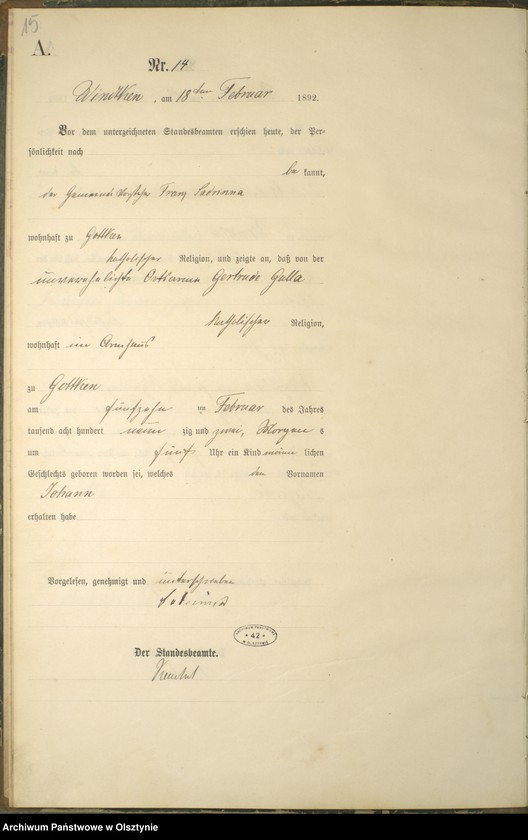 15
A.
Nr. 14
Windtken, am 18ten Februar 1892.
Vor dem unterzeichneten Standesbeamten erschien heute, der Per-
sönlichkeit nach
be kannt,
der Gemeinde Vorsteher Franz
wohnhaft zu Gottken
katholischer Religion, und zeigte an, daß von der
unverehelichte Ortsarme Gertrude Galla
katholischer Religion,
wohnhaft im Armhaus
zu Gottken
am fünfzehn ten Februar des Jahres
tausend acht hundert neun zig und zwei, Morgen s
um fünf Uhr ein Kind männ lichen
Geschlechts geboren worden sei, welches den Vornamen
Johann
erhalten habe
Vorgelesen, genehmigt und unterschrieben
Der Standesbeamte.
42
OLSZTYN
Archiwum Państwowe w Olsztynie